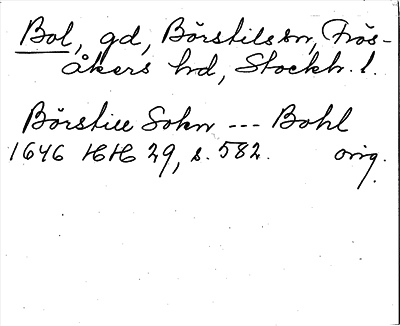 Bol, gd, Börstils sn, Frös-
åkers hd, Stockh. l.
Börstill Sokn --- Bohl
1646 HH 29, s. 582. orig.